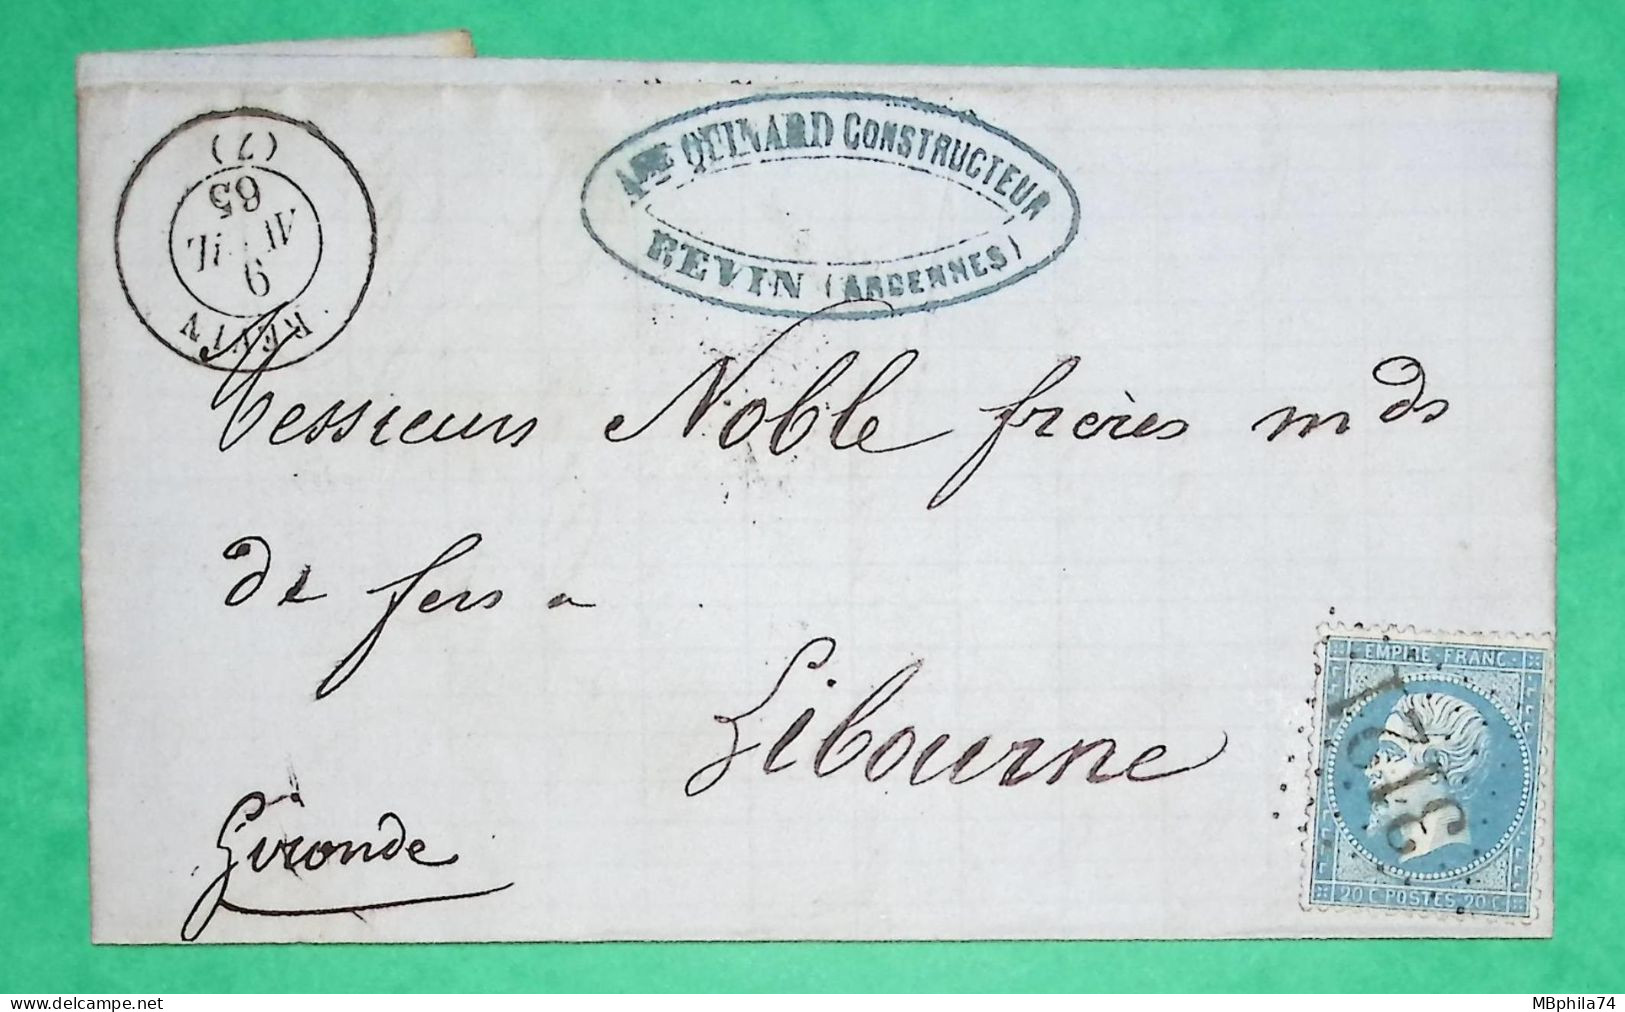 (7)
65
9
REVIN
Ame QUINARD CONSTRUCTEUR
REVIN (ARDENNES)
Messieurs Noble frères mds
de fers a
Libourne
Gironde
EMPIRE FRANC
3121
20 C POSTES 20 C
MBphila74